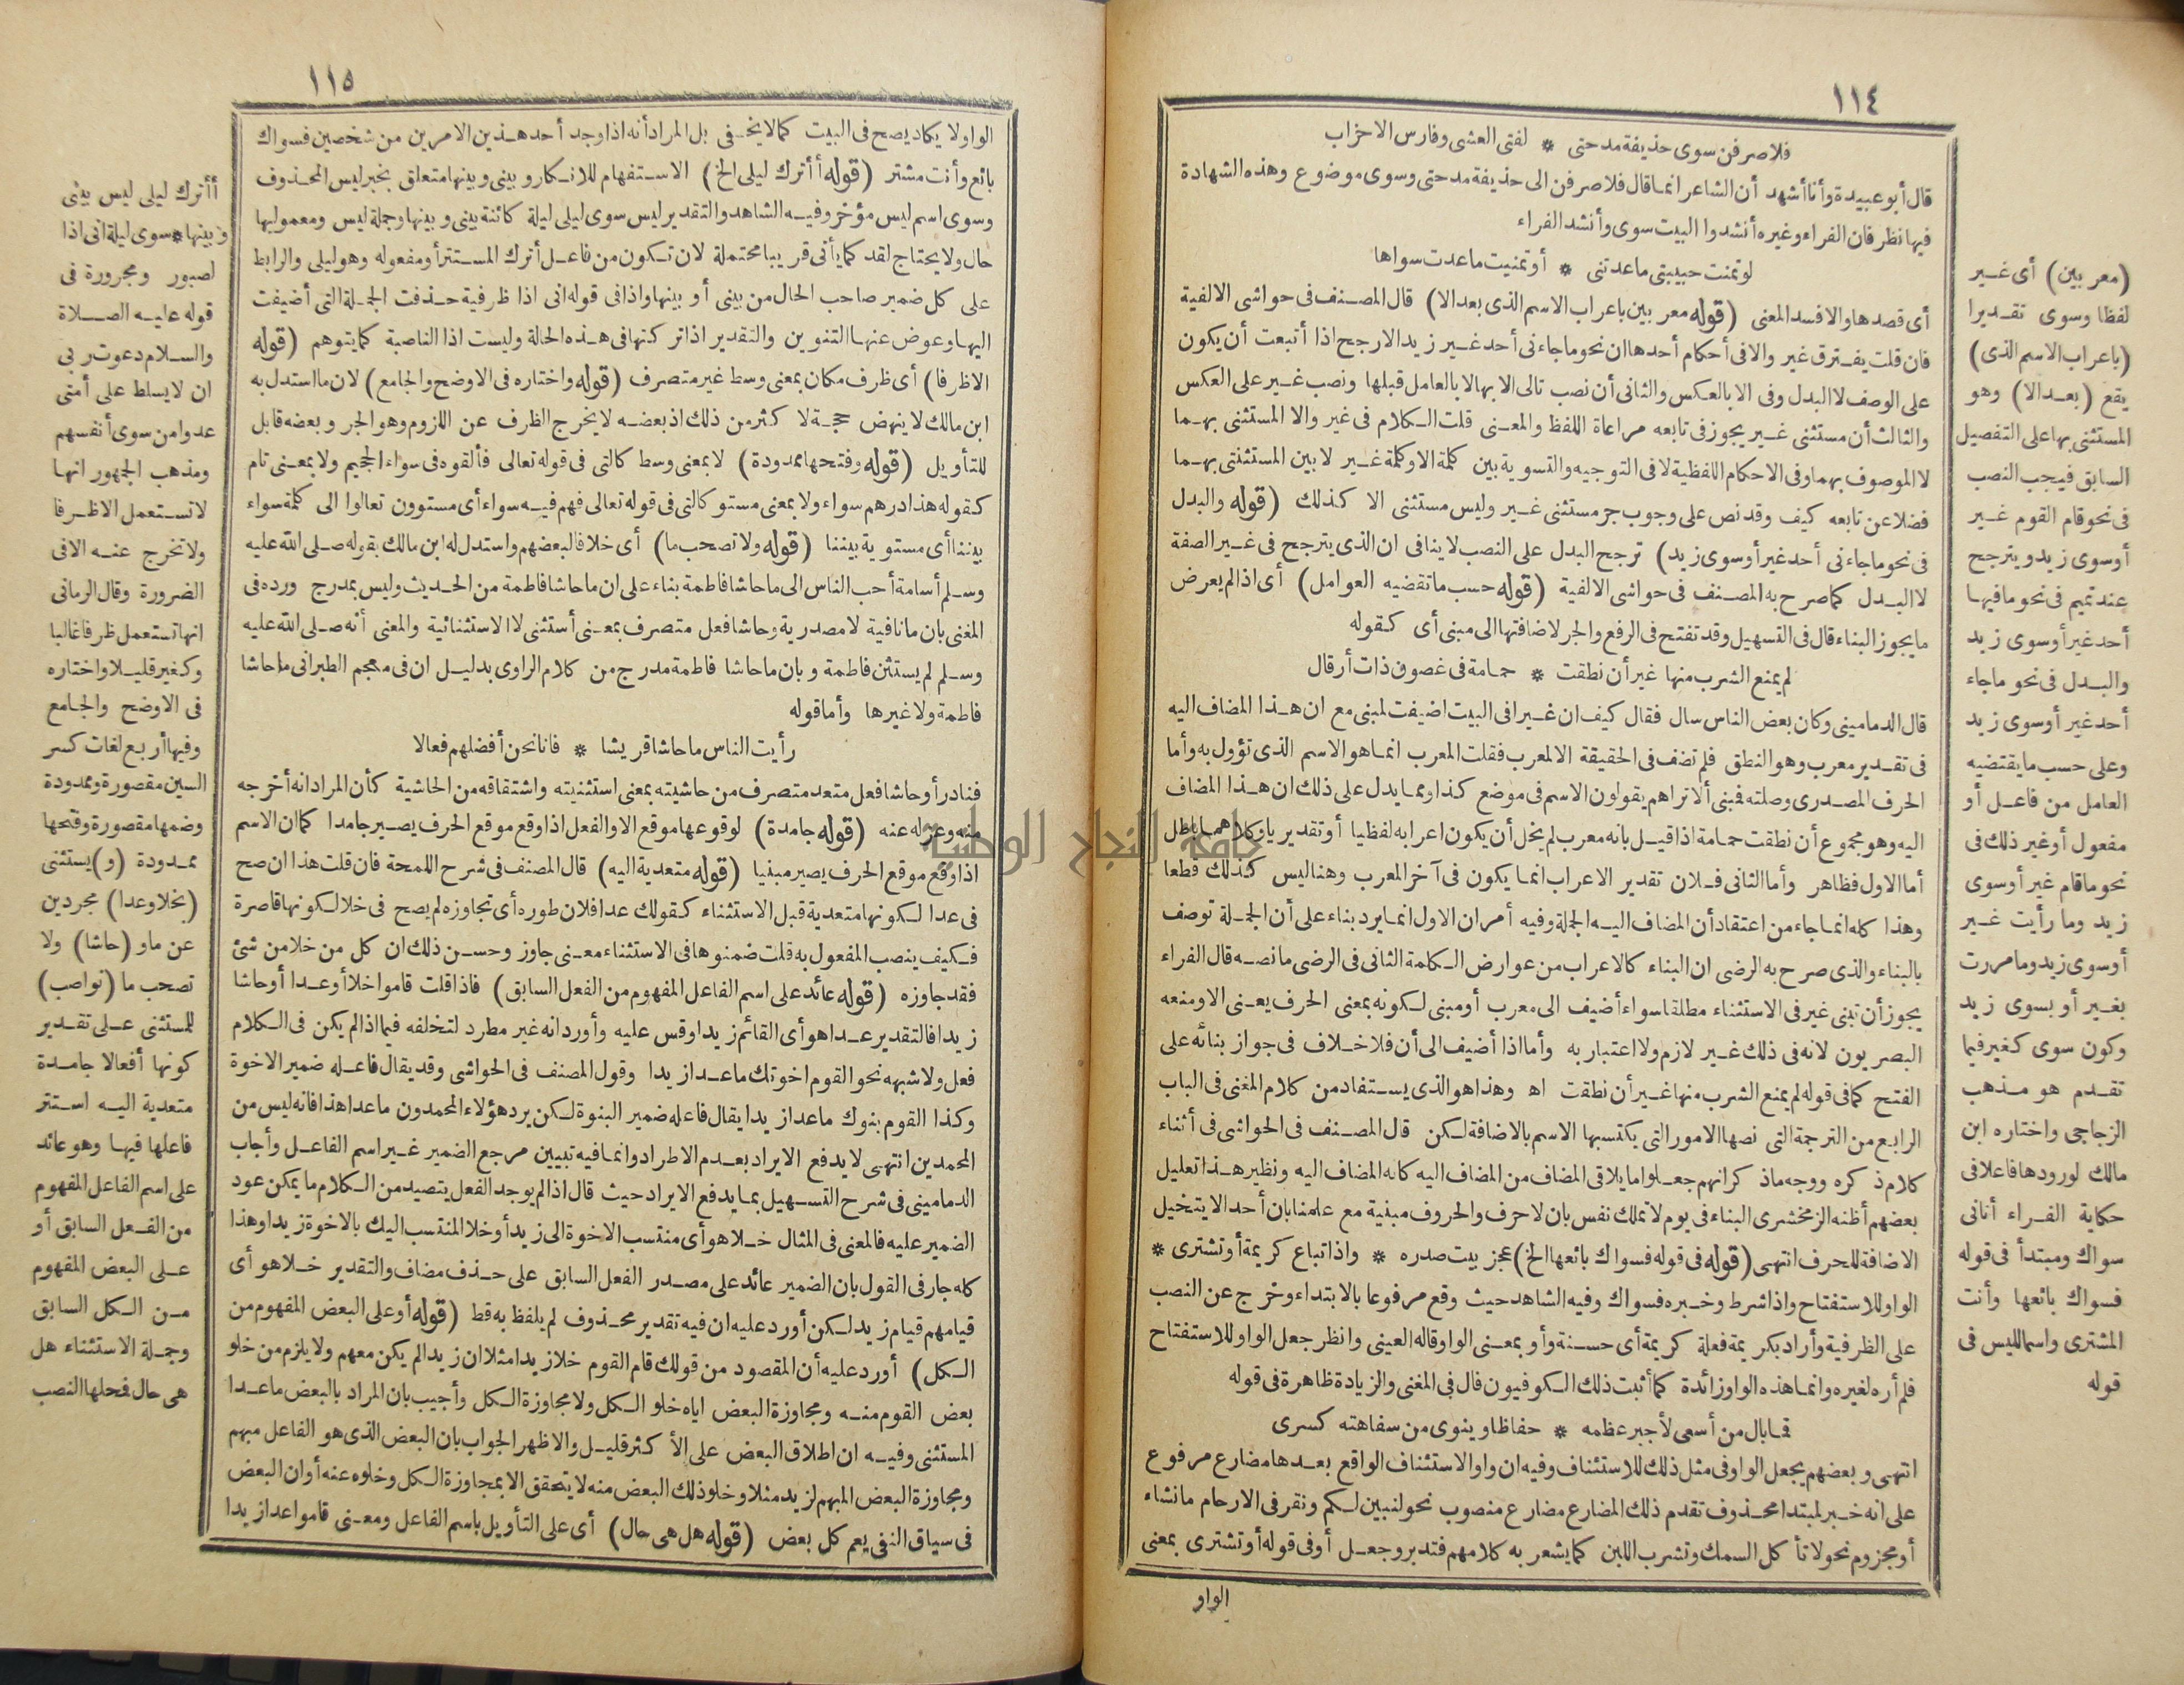 ١١٤
فلاصرفن سوى حذيفة مدحتى * لفتى العشى وفارس الاحزاب
قال أبو عبيدة وأنا أشهد أن الشاعر انما قال فلاصرفن الى حذيفة مدحتى وسوى موضوع وهذه الشهادة
فيها نظر فان الفراء وغيره أنشدوا البيت سوى وأنشد الفراء
لو تمنت حبيبتى ما عدتنى * أو تمنيت ما عدت سواها
أى قصدها والا فسد المعنى (قوله معربين باعراب الاسم الذى بعد الا) قال المصنف فى حواشى الالفية
فان قلت يفترق غير والا فى أحكام أحدها ان نحو ما جاءنى أحد غير زيد الارجح اذا أتبعت أن يكون
على الوصف لا البدل وفى الا بالعكس والثانى أن نصب تالى الا بها لا بالعامل قبلها ونصب غير على العكس
والثالث أن مستثنى غير يجوز فى تابعه مراعاة اللفظ والمعنى قلت الكلام فى غير والا المستثنى بهما
لا الموصوف بهما وفى الاحكام اللفظية لا فى التوجيه والتسوية بين كلمة الا وكلمة غير لا بين المستثنى بهما
فضلا عن تابعه كيف وقد نص على وجوب جر مستثنى غير وليس مستثنى الا كذلك (قوله والبدل
فى نحو ما جاءنى أحد غير أو سوى زيد) ترجح البدل على النصب لا ينافى ان الذى يترجح فى غير الصفة
لا البدل كما صرح به المصنف فى حواشى الالفية (قوله حسب ما تقضيه العوامل) أى اذا لم يعرض
ما يجوز البناء قال فى التسهيل وقد تفتح فى الرفع والجر لاضافتها الى مبنى أى كقوله
لم يمنع الشرب منها غير أن نطقت * حمامة فى غصون ذات أرقال
قال الدمامينى وكان بعض الناس سال فقال كيف ان غيرا فى البيت اضيفت لمبنى مع ان هذا المضاف اليه
فى تقدير معرب وهو النطق فلم تضف فى الحقيقة الا لمعرب فقلت المعرب انما هو الاسم الذى تؤول به وأما
الحرف المصدرى وصلته فبنى ألا تراهم يقولون الاسم فى موضع كذا ومما يدل على ذلك ان هذا المضاف
اليه وهو مجموع أن نطقت حمامة اذا قيل بانه معرب لم يخل أن يكون اعرابه لفظيا أو تقديريا وكلاهما باطل
أما الاول فظاهر وأما الثانى فلان تقدير الاعراب انما يكون فى آخر المعرب وهنا ليس كذلك قطعا
وهذا كله انما جاء من اعتقاد أن المضاف اليه الجملة وفيه أمران الاول انما يرد بناء على أن الجملة توصف
بالبناء والذى صرح به الرضى ان البناء كالاعراب من عوارض الكلمة الثانى فى الرضى ما نصه قال الفراء
يجوز أن تبنى غير فى الاستثناء مطلقا سواء أضيف الى معرب أو مبنى لكونه بمعنى الحرف يعنى الا ومنعه
البصريون لانه فى ذلك غير لازم ولا اعتبار به وأما اذا أضيف الى أن فلا خلاف فى جواز بنائه على
الفتح كما فى قوله لم يمنع الشرب منها غير أن نطقت اه وهذا هو الذى يستفاد من كلام المغنى فى الباب
الرابع من الترجمة التى نصها الامور التى يكتسبها الاسم بالاضافة لكن قال المصنف فى الحواشى فى أثناء
كلام ذكره ووجه ماذكر انهم جعلوا ما يلاقى المضاف من المضاف اليه كانه المضاف اليه ونظير هذا تعليل
بعضهم أظنه الزمخشرى البناء فى يوم لا تملك نفس بان لا حرف والحروف مبنية مع علمنا بان أحدا لا يتخيل
الاضافة للحرف انتهى (قوله فى قوله فسواك بائعها الخ) عجز بيت صدره * واذا تباع كريمة أو تشترى *
الواو للاستفتاح واذا شرط وخبره فسواك وفيه الشاهد حيث وقع مرفوعا بالابتداء وخرج عن النصب
على الظرفية وأراد بكريمة فعلة كريمة أى حسنة وأو بمعنى الواو قاله العينى وانظر جعل الواو للاستفتاح
فلم أره لغيره وانما هذه الواو زائدة كما أثبت ذلك الكوفيون قال فى المغنى والزيادة ظاهرة فى قوله
فما بال من أسعى لأجبر عظمه * حفاظا وينوى من سفاهته كسرى
انتهى وبعضهم يجعل الواو فى مثل ذلك للاستئناف وفيه ان واو الاستئناف الواقع بعدها مضارع مرفوع
على انه خبر لمبتدا محذوف تقدم ذلك المضارع مضارع منصوب نحو لنبين لكم ونقر فى الارحام ما نشاء
أو مجزوم نحو لا تأكل السمك وتشرب اللبن كما يشعر به كلامهم فتدبر وجعل أو فى قوله أو تشترى بمعنى
الواو
(معربين) أى غير
لفظا وسوى تقديرا
(باعراب الاسم الذى)
يقع (بعد الا) وهو
المستثنى بها على التفصيل
السابق فيجب النصب
فى نحو قام القوم غير
أو سوى زيد ويترجح
عند تميم فى نحو ما فيها
أحد غير أو سوى زيد
والبدل فى نحو ما جاء
أحد غير أو سوى زيد
وعلى حسب ما يقتضيه
العامل من فاعل أو
مفعول أو غير ذلك فى
نحو ما قام غير أو سوى
زيد وما رأيت غير
أو سوى زيد وما مررت
بغير أو بسوى زيد
وكون سوى كغير فيما
تقدم هو مذهب
الزجاجى واختاره ابن
مالك لورودها فاعلا فى
حكاية الفراء أتانى
سواك ومبتدأ فى قوله
فسواك بائعها وأنت
المشترى واسما لليس فى
قوله
١١٥
الواو ولا يكاد يصح فى البيت كما لا يخفى بل المراد أنه اذا وجد أحد هذين الامرين من شخصين فسواك
بائع وأنت مشتر (قوله أأترك ليلى الخ) الاستفهام للانكار وبينى وبينها متعلق بخبر ليس المحذوف
وسوى اسم ليس مؤخر وفيه الشاهد والتقدير ليس سوى ليلى ليلة كائنة بينى وبينها وجملة ليس ومعموليها
حال ولا يحتاج لقد كما يأتى قريبا محتملة لان تكون من فاعل أترك المستتر أو مفعوله وهو ليلى والرابط
على كل ضمير صاحب الحال من بينى أو بينها واذا فى قوله انى اذا ظرفية حذفت الجملة التى أضيفت
اليها وعوض عنها التنوين والتقدير اذا تركتها فى هذه الحالة وليست اذا الناصبة كما يتوهم (قوله
الا ظرفا) أى ظرف مكان بمعنى وسط غير متصرف (قوله واختاره فى الاوضح والجامع) لان ما استدل به
ابن مالك لا ينهض حجة لا كثر من ذلك اذ بعضه لا يخرج الظرف عن اللزوم وهو الجر وبعضه قابل
للتأويل (قوله وفتحها ممدودة) لا بمعنى وسط كالتى فى قوله تعالى فألقوه فى سواء الجحيم ولا بمعنى تام
كقوله هذا درهم سواء ولا بمعنى مستو كالتى فى قوله تعالى فهم فيه سواء أى مستوون تعالوا الى كلمة سواء
بيننا أى مستوية بيننا (قوله ولا تصحب ما) أى خلافا لبعضهم واستدل له ابن مالك بقوله صلى الله عليه
وسلم أسامة أحب الناس الى ما حاشا فاطمة بناء على ان ما حاشا فاطمة من الحديث وليس بمدرج ورده فى
المغنى بان ما نافية لا مصدرية وحاشا فعل متصرف بمعنى أستثنى لا الاستثنائية والمعنى أنه صلى الله عليه
وسلم لم يستثن فاطمة وبان ما حاشا فاطمة مدرج من كلام الراوى بدليل ان فى معجم الطبرانى ما حاشا
فاطمة ولا غيرها وأما قوله
رأيت الناس ما حاشا قريشا * فانا نحن أفضلهم فعالا
فنادر أو حاشا فعل متعد متصرف من حاشيته بمعنى استثنيته واشتقاقه من الحاشية كأن المراد انه أخرجه
منه وعزله عنه (قوله جامدة) لوقوعها موقع الا والفعل اذا وقع موقع الحرف يصير جامدا كما ان الاسم
اذا وقع موقع الحرف يصير مبنيا (قوله متعدية اليه) قال المصنف فى شرح اللمحة فان قلت هذا ان صح
فى عدا لكونها متعدية قبل الاستثناء كقولك عدا فلان طوره أى تجاوزه لم يصح فى خلا لكونها قاصرة
فكيف ينصب المفعول به قلت ضمنوها فى الاستثناء معنى جاوز وحسن ذلك ان كل من خلا من شئ
فقد جاوزه (قوله عائد على اسم الفاعل المفهوم من الفعل السابق) فاذا قلت قاموا خلا أو عدا أو حاشا
زيدا فالتقدير عدا هو أى القائم زيدا وقس عليه وأورد انه غير مطرد لتخلفه فيما اذا لم يكن فى الكلام
فعل ولا شبهه نحو القوم اخوتك ما عدا زيدا وقول المصنف فى الحواشى وقد يقال فاعله ضمير الاخوة
وكذا القوم بنوك ما عدا زيدا يقال فاعله ضمير البنوة لكن يرد هؤلاء المحمدون ما عدا هذا فانه ليس من
المحمدين انتهى لا يدفع الايراد بعدم الاطراد وانما فيه تبيين مرجع الضمير غير اسم الفاعل وأجاب
الدمامينى فى شرح التسهيل بما يدفع الايراد حيث قال اذا لم يوجد الفعل يتصيد من الكلام ما يمكن عود
الضمير عليه فالمعنى فى المثال خلا هو أى منتسب الاخوة الى زيد أو خلا المنتسب اليك بالاخوة زيدا وهذا
كله جار فى القول بان الضمير عائد على مصدر الفعل السابق على حذف مضاف والتقدير خلا هو أى
قيامهم قيام زيد لكن أورد عليه ان فيه تقدير محذوف لم يلفظ به قط (قوله أو على البعض المفهوم من
الكل) أورد عليه أن المقصود من قولك قام القوم خلا زيدا مثلا ان زيدا لم يكن معهم ولا يلزم من خلو
بعض القوم منه ومجاوزة البعض اياه خلو الكل ولا مجاوزة الكل وأجيب بان المراد بالبعض ما عدا
المستثنى وفيه ان اطلاق البعض على الأكثر قليل والاظهر الجواب بان البعض الذى هو الفاعل مبهم
ومجاوزة البعض المبهم لزيد مثلا وخلو ذلك البعض منه لا يتحقق الا بمجاوزة الكل وخلوه عنه أو ان البعض
فى سياق النفى يعم كل بعض (قوله هل هى حال) أى على التأويل باسم الفاعل ومعنى قاموا عدا زيدا
أأترك ليلى ليس بينى
وبينها * سوى ليلة انى اذا
لصبور ومجرورة فى
قوله عليه الصلاة
والسلام دعوت ربى
ان لا يسلط على أمتى
عدوا من سوى أنفسهم
ومذهب الجمهور انها
لا تستعمل الا ظرفا
ولا تخرج عنه الا فى
الضرورة وقال الرمانى
انها تستعمل ظرفا غالبا
وكغير قليلا واختاره
فى الاوضح والجامع
وفيها أربع لغات كسر
السين مقصورة وممدودة
وضمها مقصورة وفتحها
ممدودة (و) يستثنى
(بخلا وعدا) مجردين
عن ما و (حاشا) ولا
تصحب ما (نواصب)
للمستثنى على تقدير
كونها أفعالا جامدة
متعدية اليه استتر
فاعلها فيها وهو عائد
على اسم الفاعل المفهوم
من الفعل السابق أو
على البعض المفهوم
من الكل السابق
وجملة الاستثناء هل
هى حال فحلها النصب
جامعة النجاح الوطنية